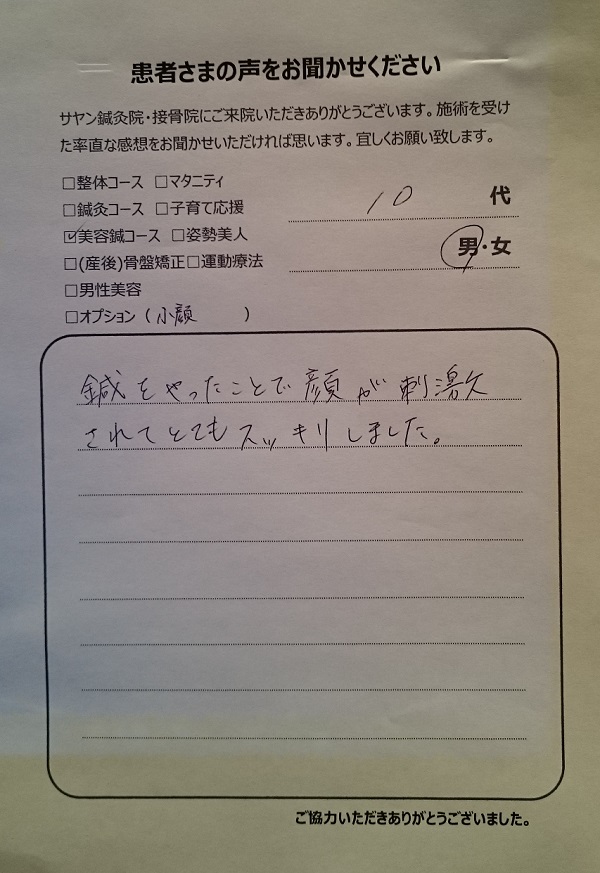 患者さまの声をお聞かせください
サヤン鍼灸院・接骨院にご来院いただきありがとうございます。施術を受け
た率直な感想をお聞かせいただければ思います。宜しくお願い致します。
□整体コース □マタニティ
□鍼灸コース □子育て応援
☑美容鍼コース □姿勢美人
□(産後)骨盤矯正□運動療法
□男性美容
□オプション（小顔　　）
10 代
男・女
鍼をやったことで顔が刺激
されてとてもスッキリしました。
ご協力いただきありがとうございました。